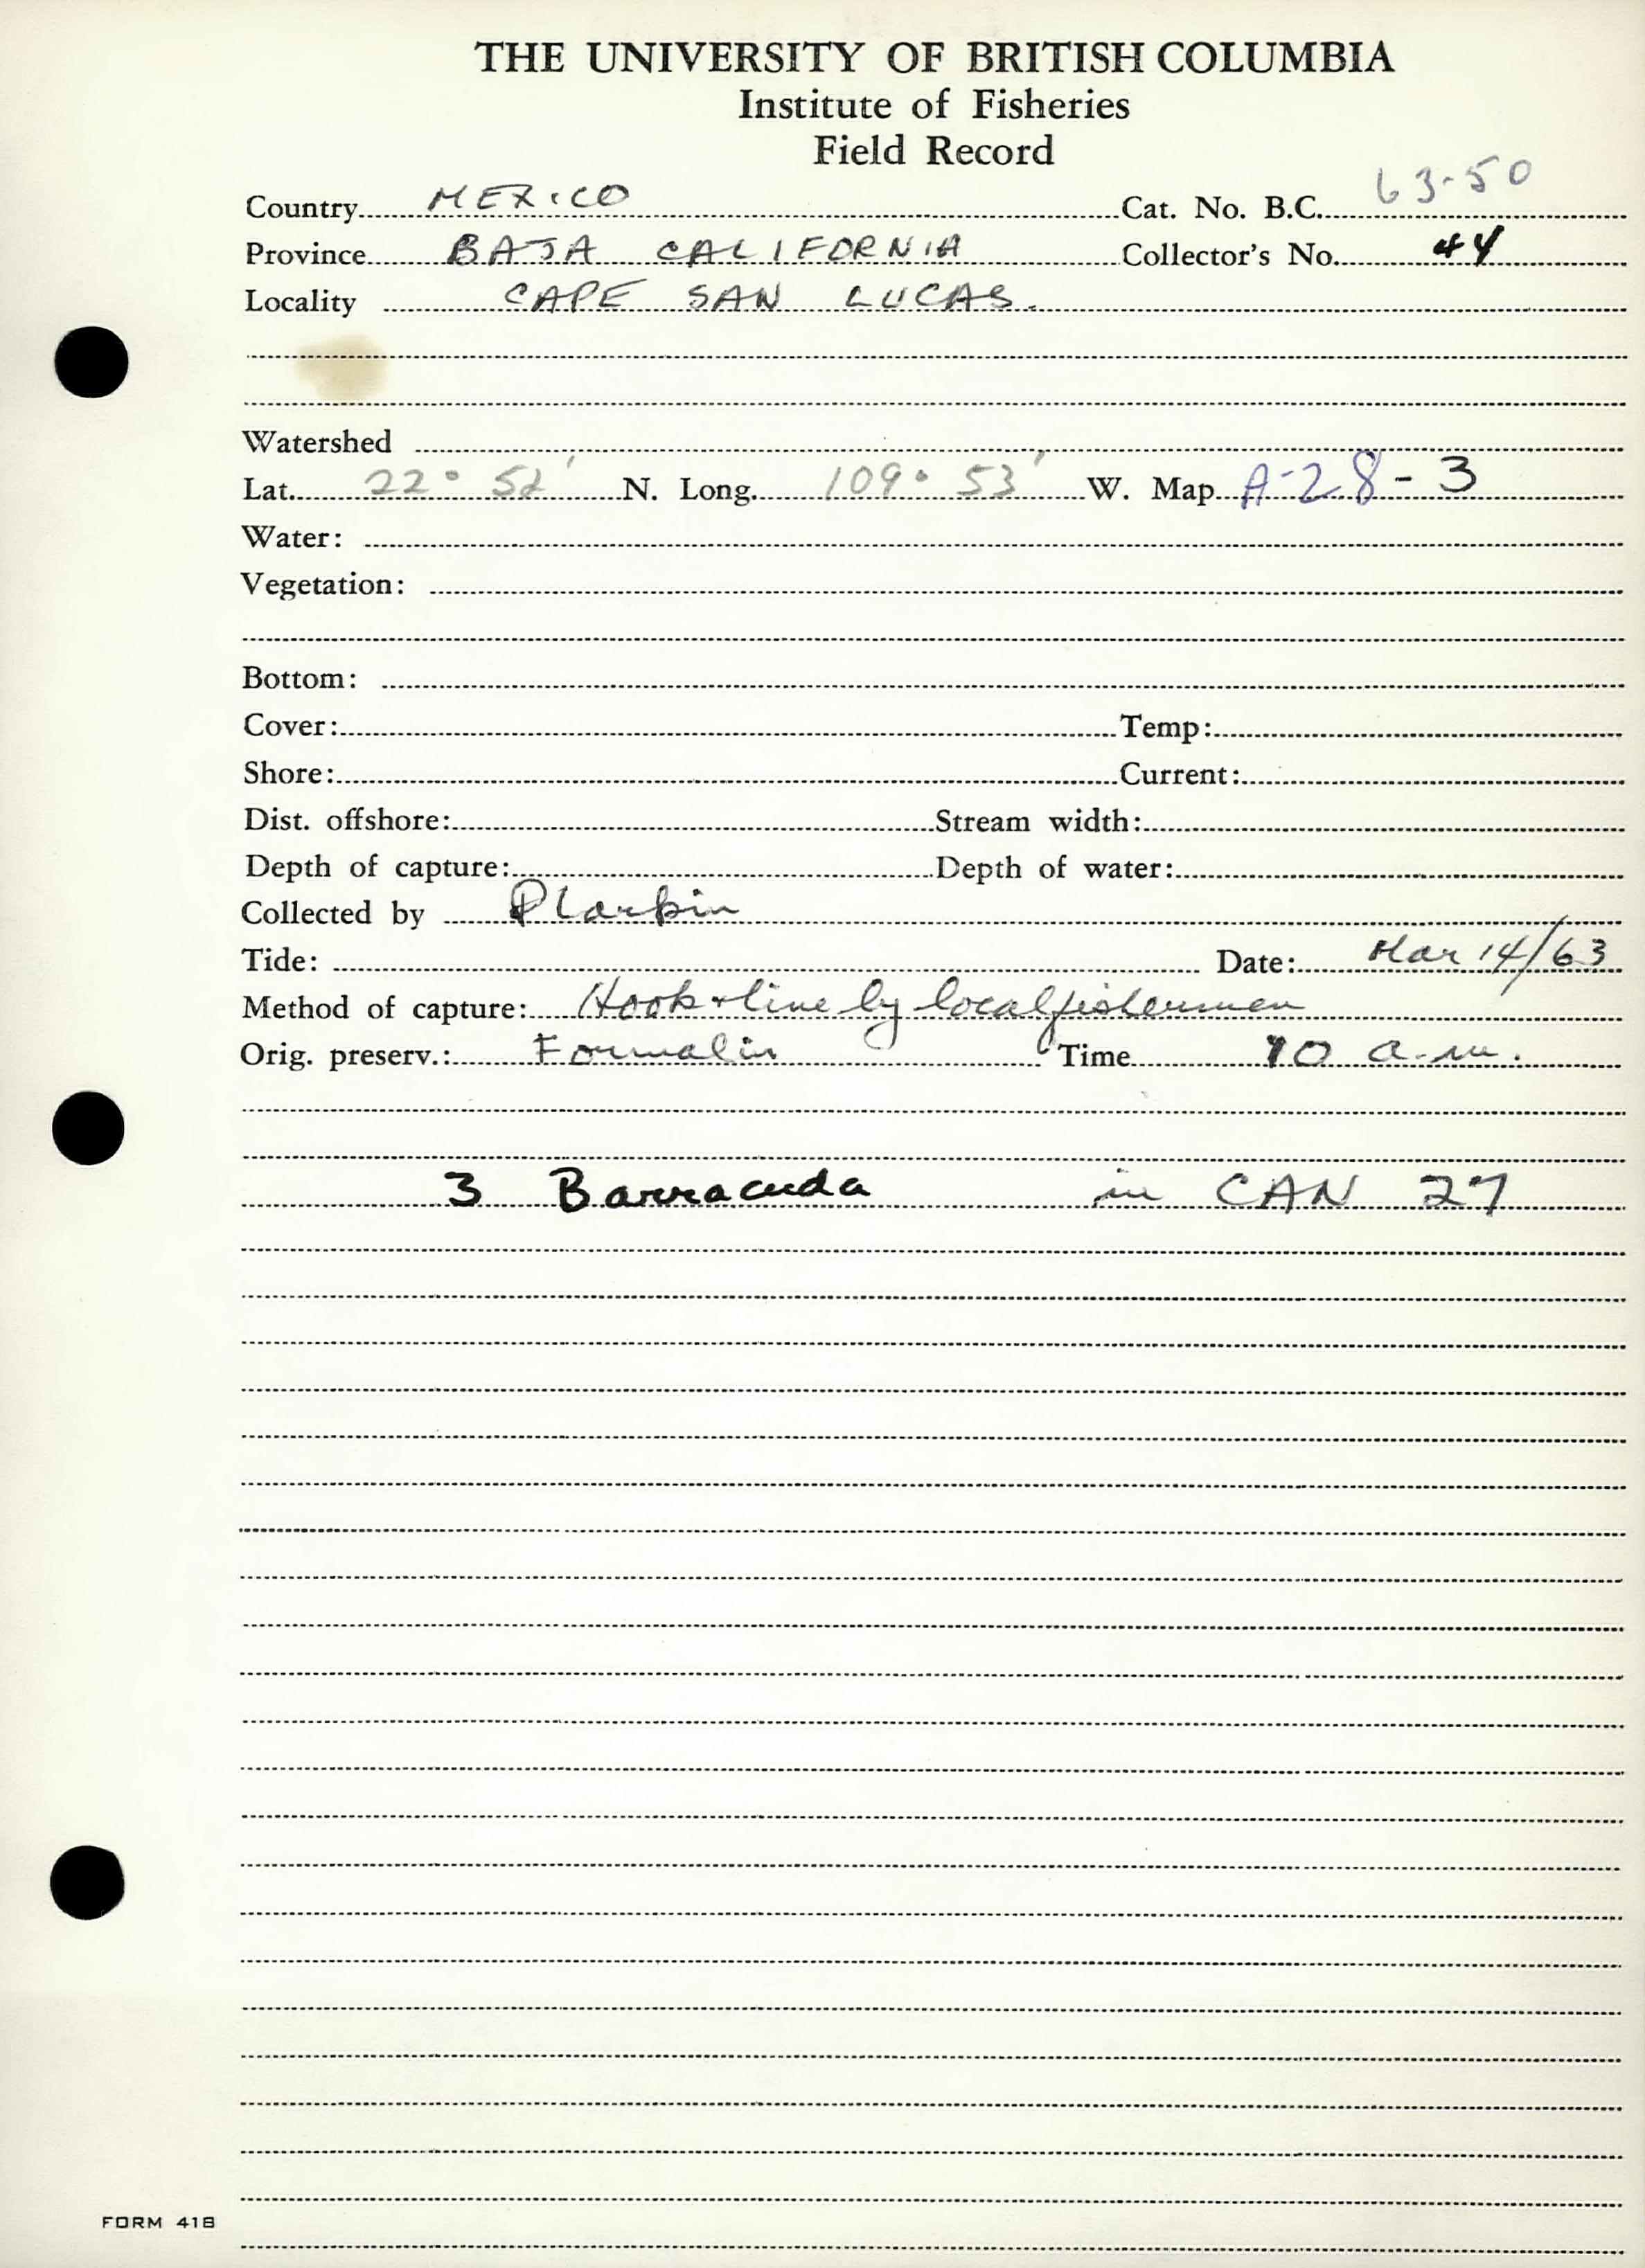 THE UNIVERSITY OF BRITISH COLUMBIA
Institute of Fisheries
Field Record
Country MEXICO Cat. No. B.C. 63-50
Province BAJA CALIFORNIA Collector's No. 44
Locality CAPE SAN LUCAS.
Watershed
Lat. 22° 52' N. Long. 109° 53' W. Map A-28-3
Water:
Vegetation:
Bottom:
Cover: Temp:
Shore: Current:
Dist. offshore: Stream width:
Depth of capture: Depth of water:
Collected by P Larkin
Tide: Date: Mar 14/63
Method of capture: Hook + line by local fishermen
Orig. preserv.: Formalin Time 10 a.m.
3 Barracuda in CAN 27
FORM 418